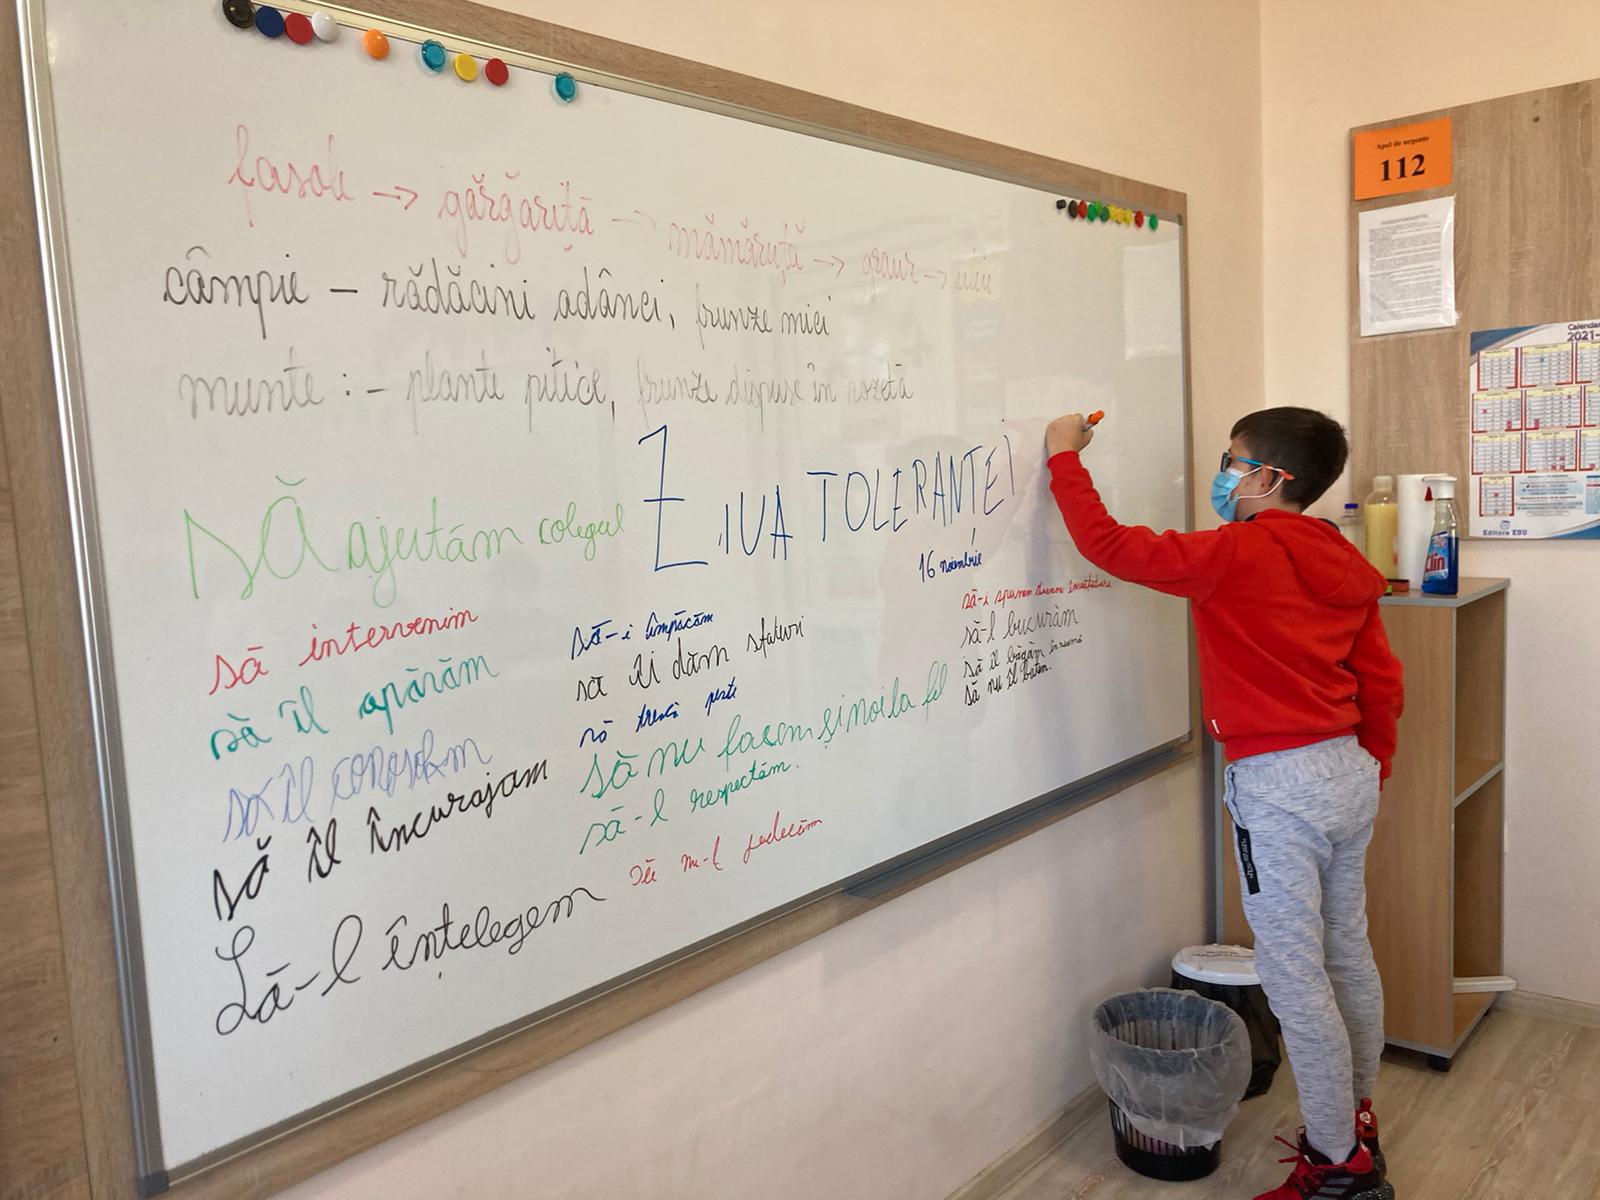 fasole → gărgăriță → mămăruță → graur → uliu
câmpie – rădăcini adânci, frunze mici
munte : – plante pitice, frunze dispuse în rozetă
ZIUA TOLERANȚEI
16 noiembrie
SĂ ajutăm colegul
să intervenim
să îl apărăm
să îl consolăm
să îl încurajam
Să-l înțelegem
să-i împăcăm
să îi dăm sfaturi
să treacă peste
să nu facem și noi la fel
să-l respectăm.
să nu-l judecăm
să-i spunem
să-l bucurăm
să îl băgăm în seamă
să nu îl batem.
Apel de urgențe
112
Calendar
2021-
Editura EDU
Clin